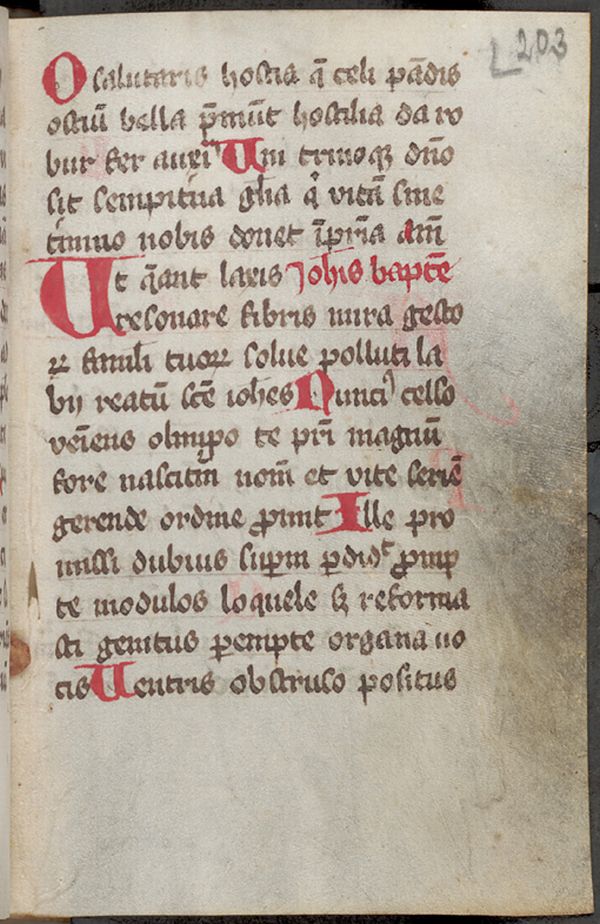 203
O salutaris hostia q̄ celi pādis
ostiū bella p̄mūt hostilia da ro
bur fer auxiꝰ Uni trinoqꝫ dn̄o
sit sempiťna glīa qͥ vitā sine
timino nobis donet ī pr̄ia am̄
Ut q̄ant laxis Joh̄is bapt̄e
resonare fibris mira gesto
ꝝ famuli tuoꝝ solue polluti la
bij reatū sc̄e ioh̄es Nunciꝰ celso
veīens olimpo te pr̄i magnū
fore nascitm nom̄ et vite seriē
gerende ordine ꝓmit Ille pro
missi dubius suꝑni ꝑdidᵗ ꝓmp
te modulos loquele sꝫ reforma
sti genitus ꝑempte organa uo
cis Uentris obstruso positus